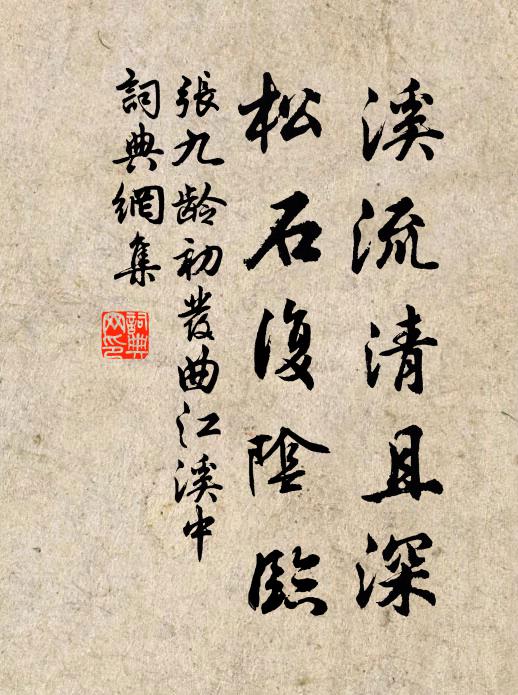 溪流清且深
松石復陰臨
張九龄初發曲江溪中
詞典網集
詞典
网印